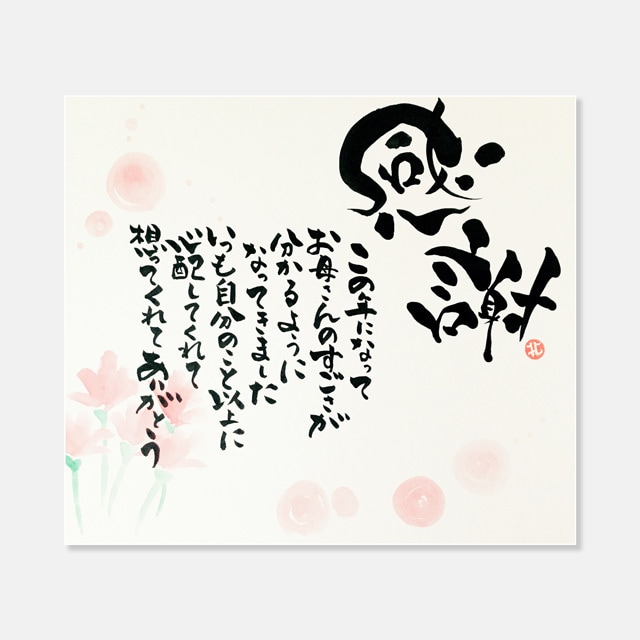 感謝
この年になって
お母さんのすごさが
分かるように
なってきました
いつも自分のこと以上に
心配してくれて
想ってくれてありがとう
北